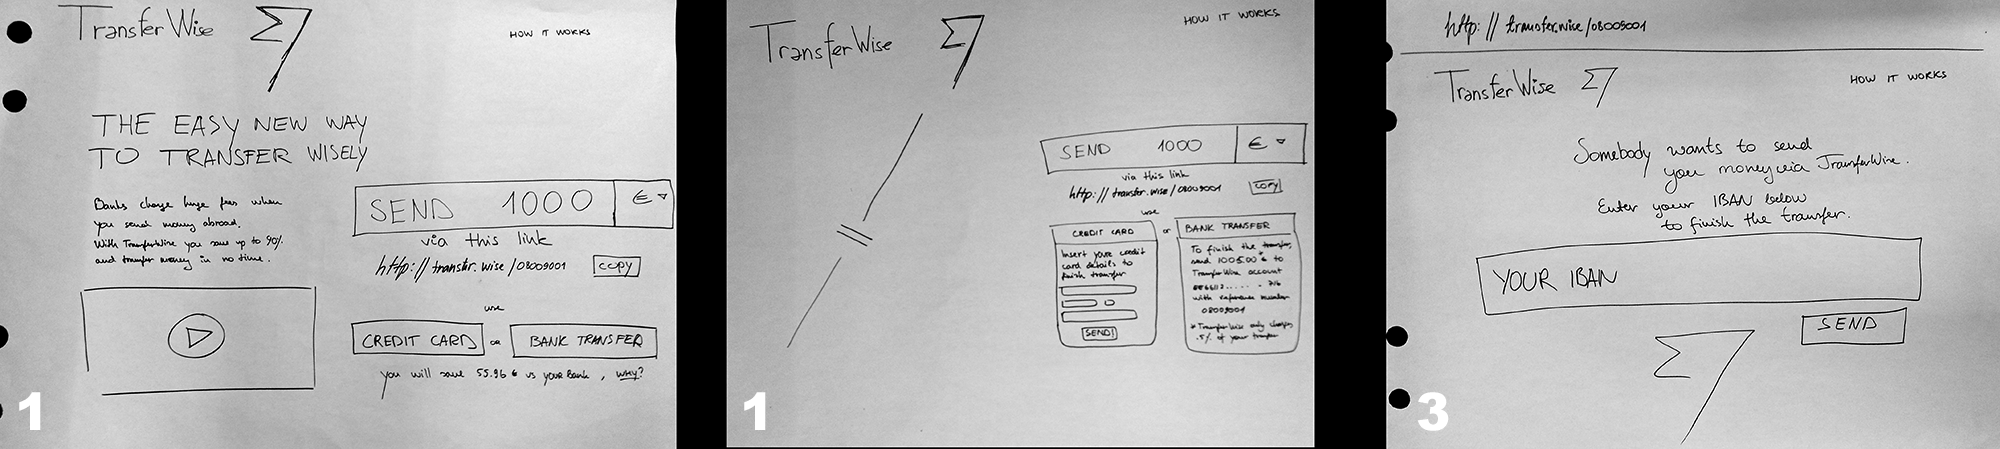 TransferWise
HOW IT WORKS
THE EASY NEW WAY
TO TRANSFER WISELY
Banks charge huge fees when
you send money abroad.
With TransferWise you save up to 90%
and transfer money in no time.
SEND 1000 €
via this link
http://transfer.wise/08009001 COPY
use
CREDIT CARD or BANK TRANSFER
you will save 55.96 € vs your Bank, WHY?
1
TransferWise
HOW IT WORKS
SEND 1000 €
via this link
http://transfer.wise/08009001 COPY
use
CREDIT CARD
Insert your credit
card details to
finish transfer
SEND!
or
BANK TRANSFER
To finish the transfer,
send 1005.00 € to
TransferWise account
with reference number
08009001
* TransferWise only charges
.5% of your transfer
1
http://transfer.wise/08009001
TransferWise
HOW IT WORKS
Somebody wants to send
you money via TransferWise.
Enter your IBAN below
to finish the transfer.
YOUR IBAN
SEND
3